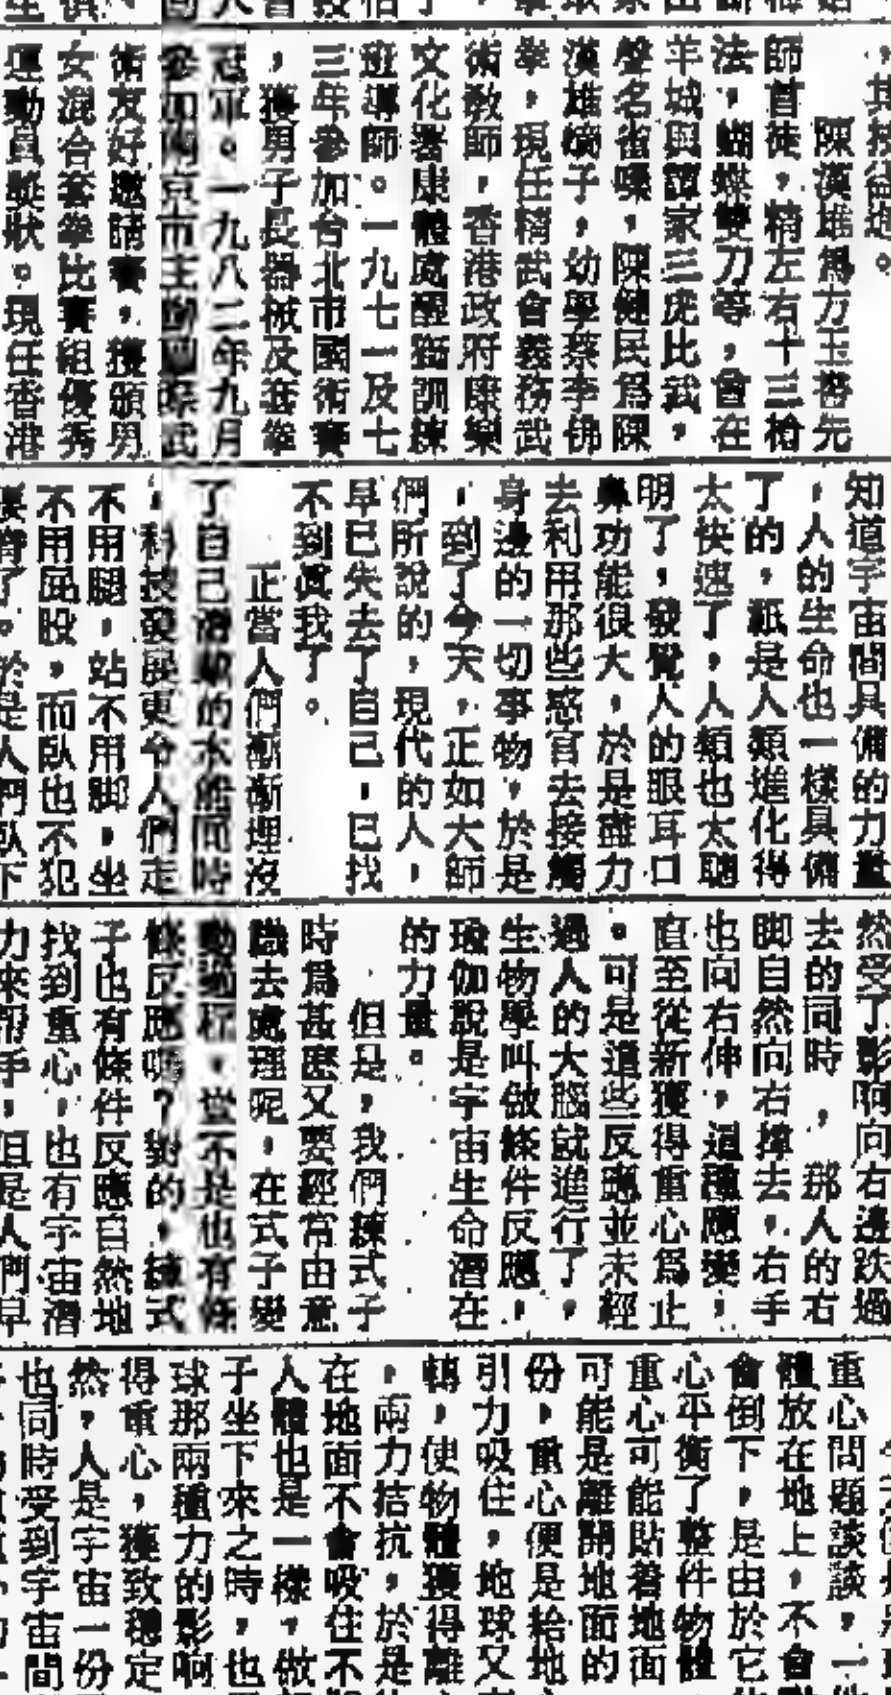 ，其技益進。
陳漢雄為方玉書先
師首徒，精左右十三槍
法，蝴蝶雙刀等，曾在
羊城與譚家三虎比武，
聲名雀噪，陳健民為陳
漢雄嫡子，幼學蔡李佛
拳，現任精武會義務武
術教師，香港政府康樂
文化署康體處醒獅訓練
班導師。一九七一及七
三年參加台北市國術賽
，獲男子長器械及套拳
冠軍。一九八二年九月
參加南京市主辦國際武
術友好邀請賽，獲頒男
女混合套拳比賽組優秀
運動員獎狀。現任香港
知道宇宙間具備的力量
，人的生命也一樣具備
了的，祇是人類進化得
太快速了，人類也太聰
明了，發覺人的眼耳口
鼻功能很大，於是盡力
去利用那些感官去接觸
身邊的一切事物，於是
，到了今天，正如大師
們所說的，現代的人，
早已失去了自己，已找
不到真我了。
正當人們漸漸埋沒
了自己潛藏的本能同時
，科技發展更令人們走
不用腿，站不用脚，坐
不用屁股，而臥也不犯
了。於是人們臥下
然受了影响向右邊跌過
去的同時，那人的右
脚自然向右撐去，右手
也向右伸，這種應變，
直至從新獲得重心為止
。可是這些反應並未經
過人的大腦就進行了，
生物學叫做條件反應，
瑜伽說是宇宙生命潛在
的力量。
但是，我們練式子
時為甚麽又要經常由意
識去處理呢，在式子變
動過程，豈不是也有條
條反應嗎？對的，練式
子也有條件反應自然地
找到重心，也有宇宙潛
力來帮手，但是人們早
重心問題談談，一件
體放在地上，不會
會倒下，是由於它
心平衡了整件物體
重心可能貼着地面
可能是離開地面的
份，重心便是給地
引力吸住，地球又
轉，使物體獲得離
，兩力拮抗，於是
在地面不會吸住不
人體也是一樣，做
子坐下來之時，也
球那兩種力的影响
得重心，獲致穩定
然，人是宇宙一份
也同時受到宇宙間